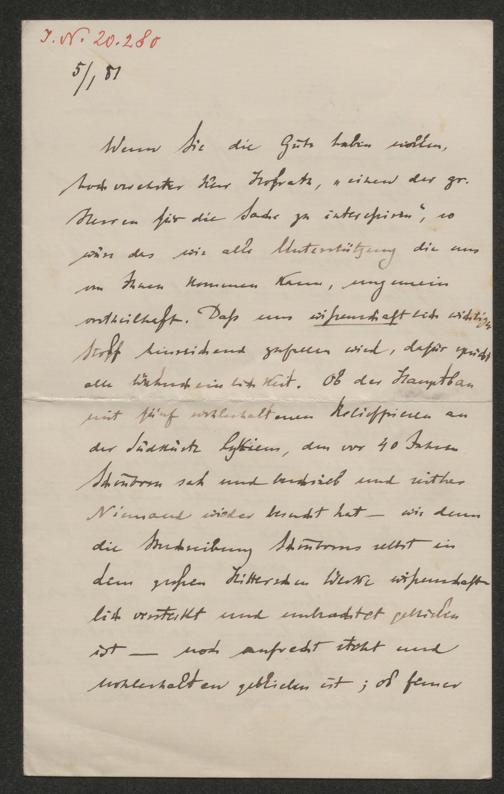 I. N. 20.280
5/1 81
Wenn Sie die Güte haben wollen,
hochverehrter Herr Hofrath, „einen der gr.
Herren für die Sache zu interessiren“, so
wäre das wie alle Unterstützung die uns
von Ihnen kommen kann, ungemein
vortheilhaft. Daß uns wißenschaftlich wichtiger
Stoff hinreichend zufallen wird, dafür spricht
alle Wahrscheinlichkeit. Ob der Hauptbau
mit fünf wohlerhaltenen Relieffriesen an
der Südküste Lykiens, den vor 40 Jahren
Schönborn sah und beschrieb und seither
Niemand wieder besucht hat — wie denn
die Beschreibung Schönborns selbst in
dem großen Ritterschen Werke wißenschaft-
lich versteckt und unbeachtet geblieben
ist — noch aufrecht steht und
wohlerhalten geblieben ist; ob ferner